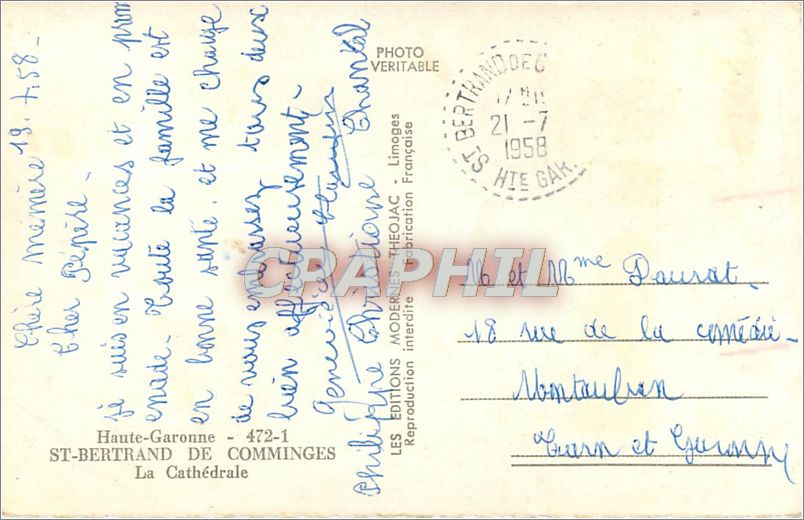 19.7.58-
Chère mémère
Cher Pépère.
je suis en vacances et en prom
enade. Toute la famille est
en bonne santé, et me charge
de vous embrasser tous deux
bien affectueusement.
Geneviève
Philippe Christiane Chantal
PHOTO
VERITABLE
LES EDITIONS MODERNES THEOJAC - Limoges
Reproduction interdite Fabrication Française
ST BERTRAND DE C
21 -7
1958
HTE GAR.
CPAPHIL
M et Mme Daurat-
18 rue de la comédie-
Montauban
Tarn et Garonne
Haute-Garonne - 472-1
ST-BERTRAND DE COMMINGES
La Cathédrale